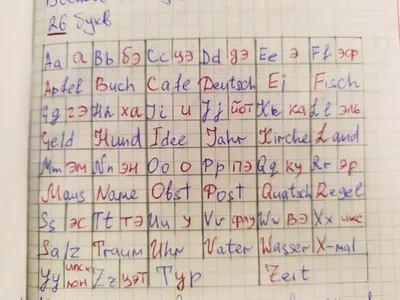 26 букв
Aa а Bb бэ Cc цэ Dd дэ Ee э Ff эф
Apfel Buch Cafe Deutsch Ei Fisch
Gg гэ Hh ха Ii и Jj йот Kk ка Ll эль
Geld Hund Idee Jahr Kirche Land
Mm эм Nn эн Oo о Pp пэ Qq ку Rr эр
Maus Name Obst Post Quatsch Regel
Ss эс Tt тэ Uu у Vv фау Ww вэ Xx икс
Salz Traum Uhr Vater Wasser X-mal
Yy ипсилон Zz цэт Typ Zeit